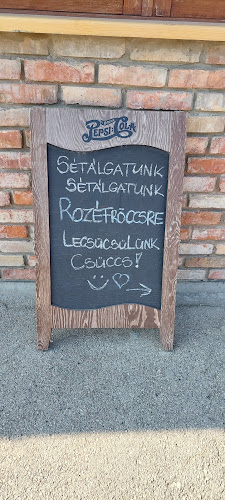 PEPSI-COLA
SÉTÁLGATUNK
SÉTÁLGATUNK
ROZÉFRÖCCSRE
LECSÜCSÜLÜNK
CSÜCCS!